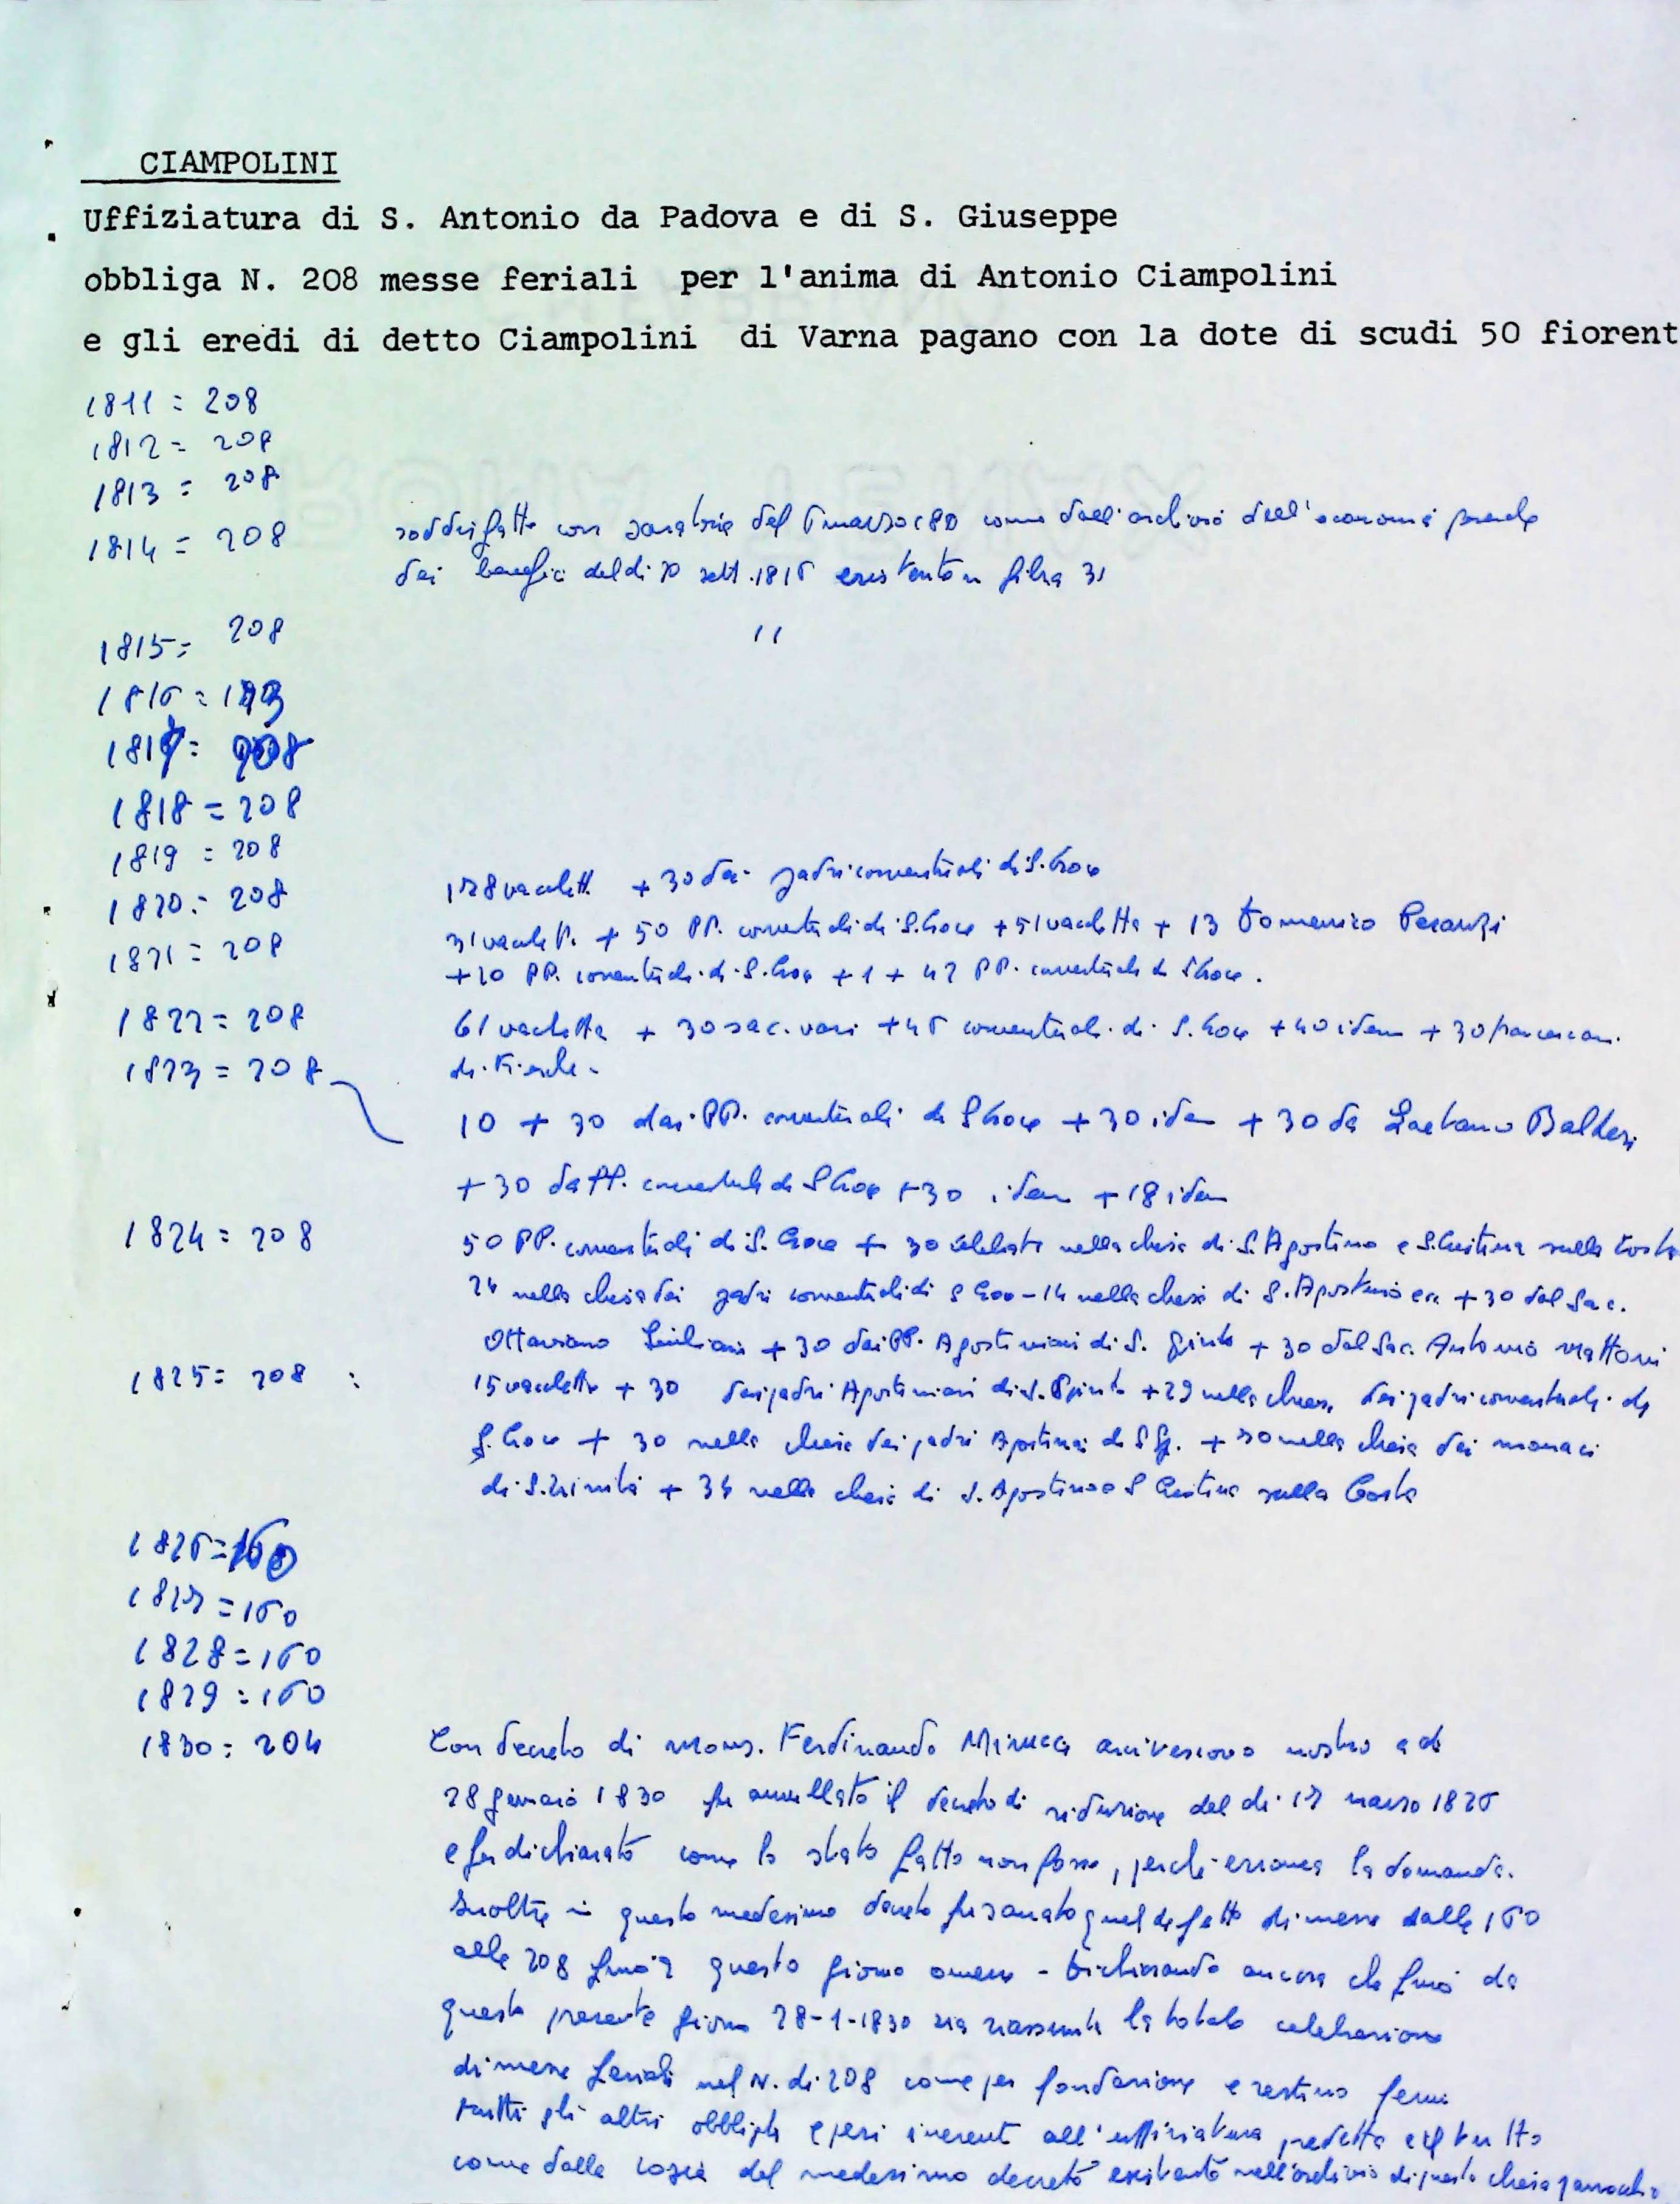 CIAMPOLINI
Uffiziatura di S. Antonio da Padova e di S. Giuseppe
obbliga N. 208 messe feriali per l'anima di Antonio Ciampolini
e gli eredi di detto Ciampolini di Varna pagano con la dote di scudi 50 fiorent
1811 = 208
1812 = 208
1813 = 208
1814 = 208 soddisfatte con sanatoria del come dall'archivio dell'economia
dei benefici del di sett. 1816 esistente in filza 31
1815 = 208 "
1816 =
1817 = 208
1818 = 208
1819 = 208
1820 = 208 vacchett. + 30 dai padri conventuali di S. Croce
1821 = 208 + 50 PP. conventuali di S. Croce + 51 vacchetta + 13 Domenico
+ 20 PP. conventuali di S. Croce + 1 + 42 PP. conventuali di S Croce.
1822 = 208 61 vacchetta + 30 sac. vari + 46 conventuali di S. Croce + 40 idem + 30 francescan.
di Fiesole.
1823 = 208 10 + 30 dai PP. conventuali di S Croce + 30 idem + 30 da Gaetano Balderi
+ 30 da PP. conventuali di S Croce + 30 idem + 18 idem
1824 = 208 50 PP. conventuali di S. Croce + 30 celebrate nella chiesa di S. Agostino e S. Cristina sulla Costa
24 nella chiesa dei padri conventuali di S Croce - 14 nella chiesa di S. Agostino ecc. + 30 dal Sac.
Ottaviano Giuliani + 30 dai PP. Agostiniani di S. Spirito + 30 dal Sac. Antonio Mattoni
1825 = 208 : 15 vacchetta + 30 dai padri Agostiniani di S. Spirito + 29 nella chiesa dei padri conventuali di
S. Croce + 30 nella chiesa dei padri Agostiniani di S Sp. + nella chiesa dei monaci
di S. Trinità + 34 nella chiesa di S. Agostino e S Cristina sulla Costa
1826 = 160
1827 = 160
1828 = 160
1829 = 160
1830 = 204 Con decreto di Mons. Ferdinando Minucci arcivescovo nostro a dì
28 gennaio 1830 fu annullato il decreto di riduzione del di 17 marzo 1826
e fu dichiarato come lo stato fatto non fosse, perché erronea la domanda.
Inoltre in questo medesimo decreto fu sanato quel defetto di messe dalle 160
alle 208 fino a questo giorno omesse - Dichiarando ancora che fino da
questo presente giorno 28-1-1830 sia riassunta la totale celebrazione
di messe feriali nel N. di 208 come per fondazione e restino fermi
tutti gli altri obblighi e pesi inerenti all'uffiziatura predetta e il tutto
come dalla copia del medesimo decreto esistente nell'archivio di questa chiesa parrocchi